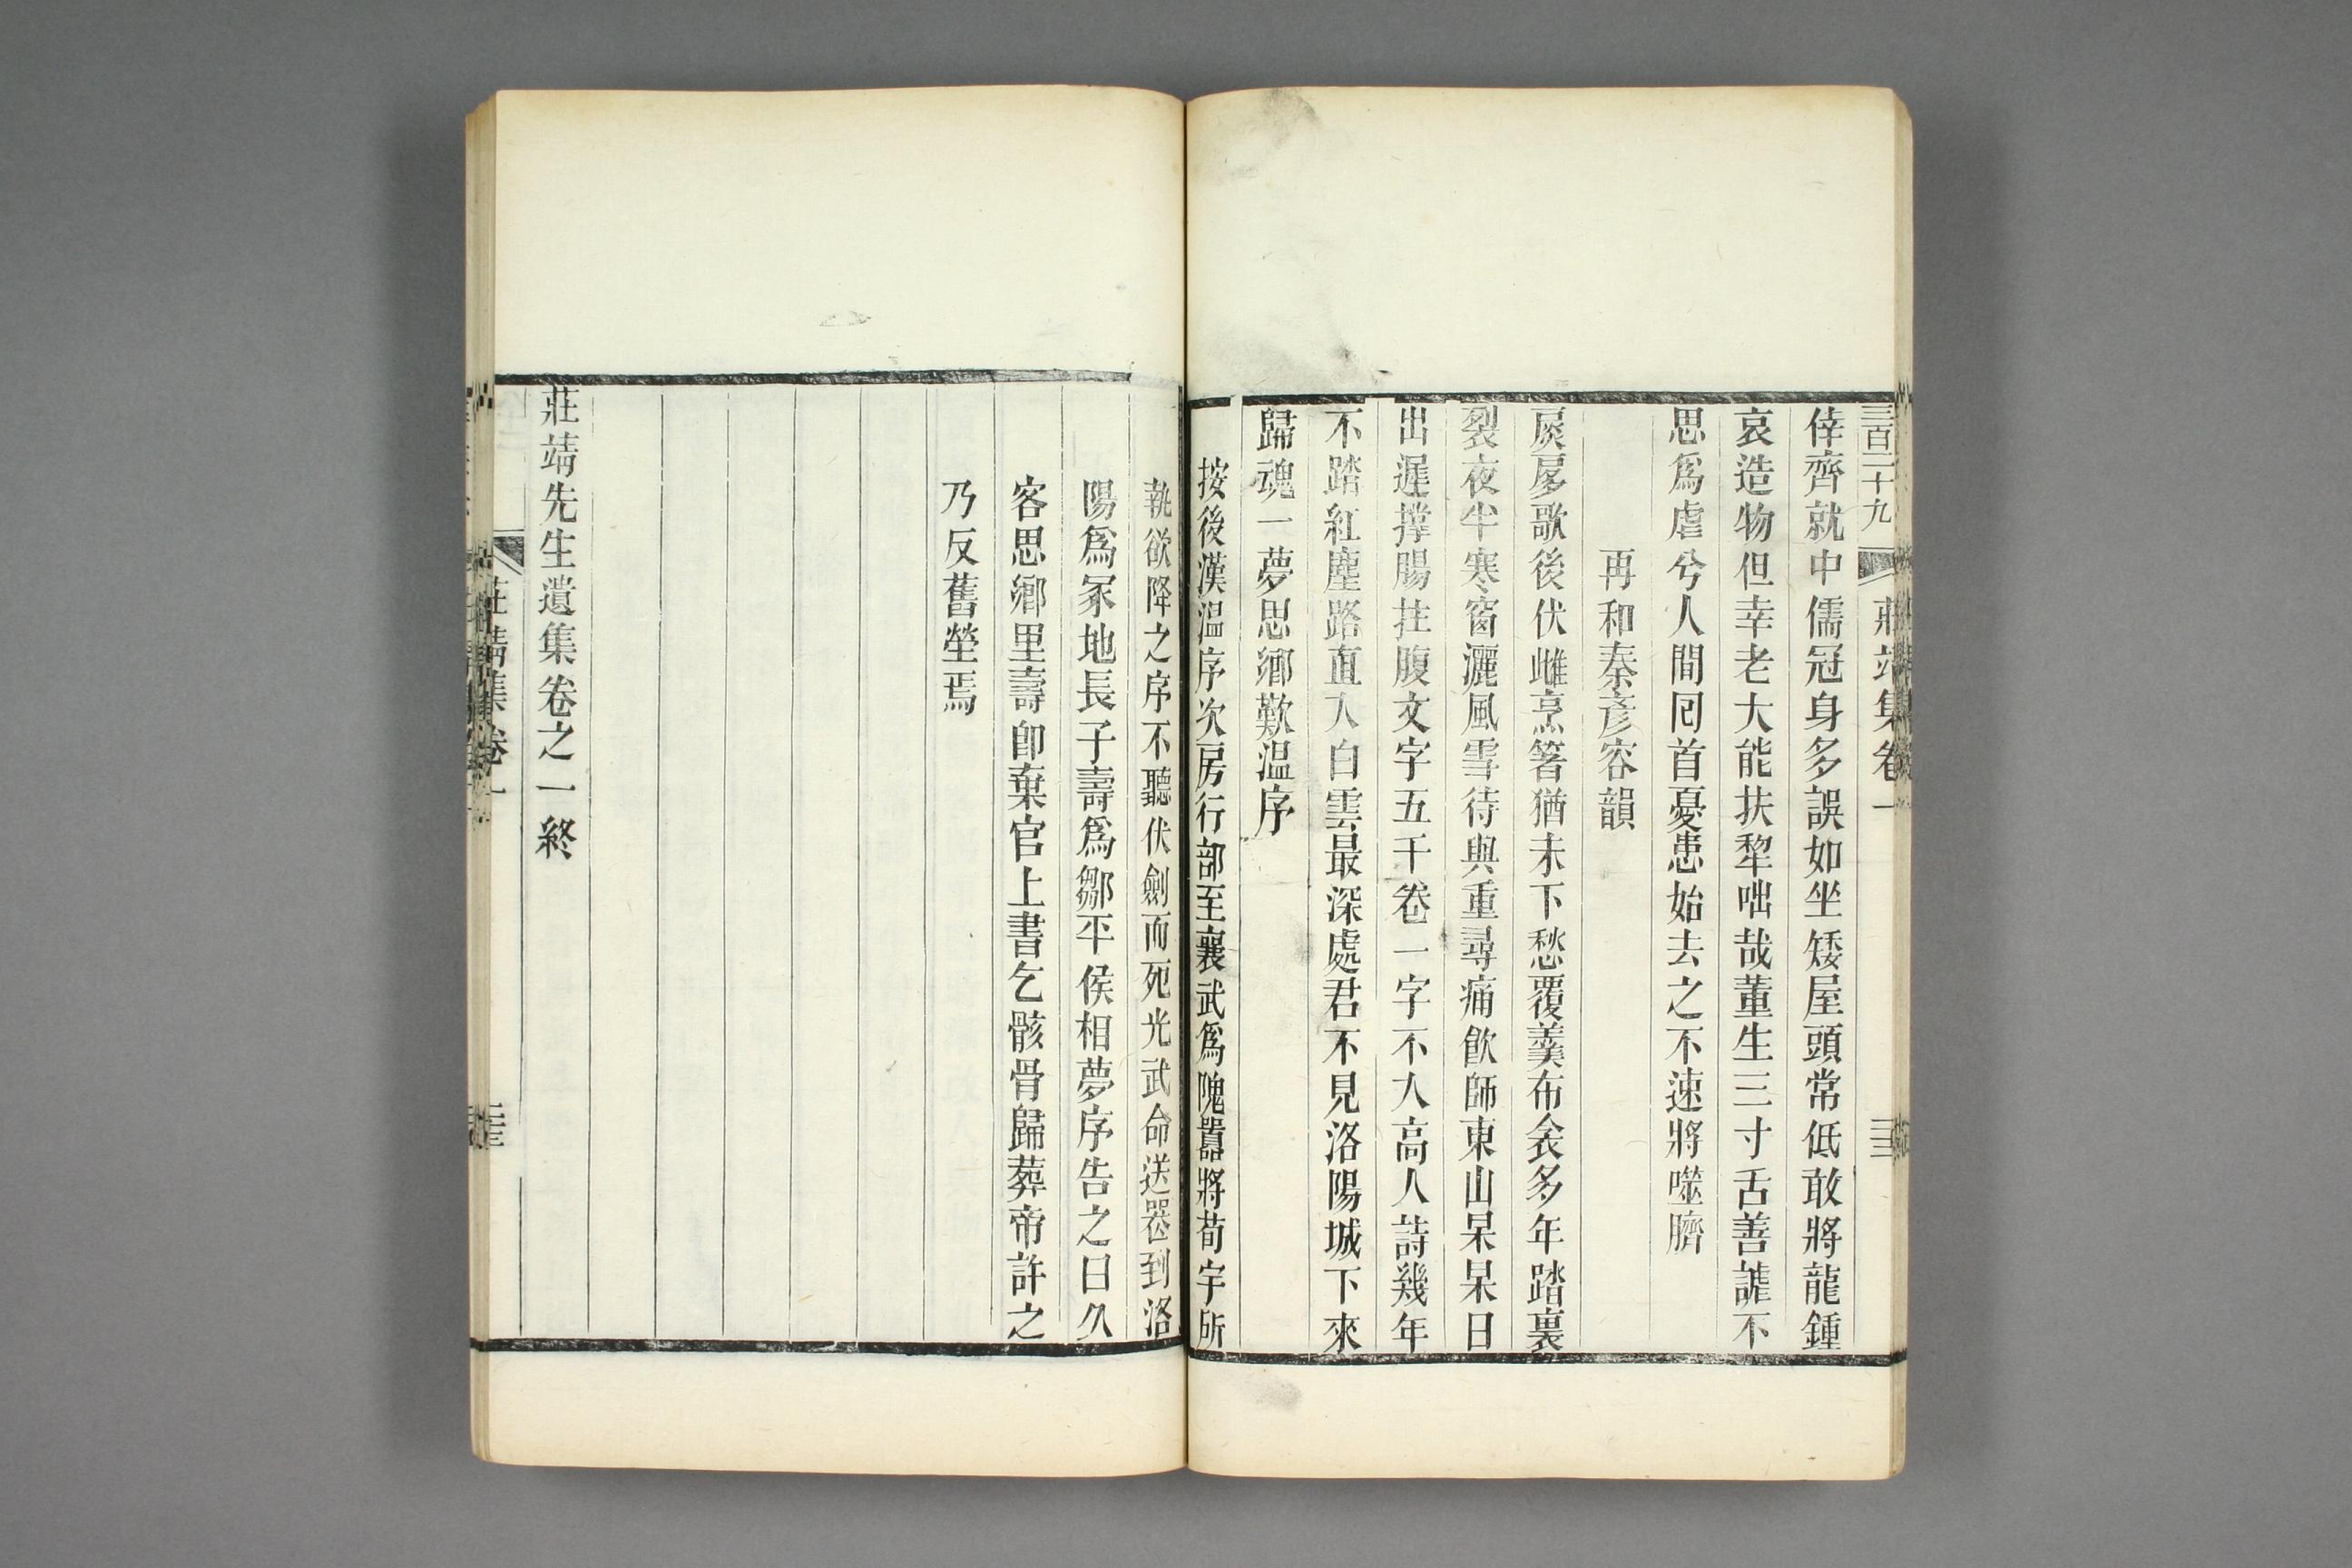 三百二十九
莊靖集卷一
倖齊就中儒冠身多誤如坐矮屋頭常低敢將龍鍾
哀造物但幸老大能扶犂咄哉董生三寸舌善謔不
思爲虐兮人間囘首憂患始去之不速將噬臍
再和秦彥容韻
扊扅歌後伏雌烹箸猶未下愁覆羹布衾多年踏裏
裂夜半寒窗灑風雪待與重尋痛飮師東山杲杲日
出遲撐腸拄腹文字五千卷一字不入高人詩幾年
不踏紅塵路直入白雲最深處君不見洛陽城下來
歸魂一夢思鄉歎温序
按後漢温序次房行部至襄武爲隗囂將荀宇所
執欲降之序不聽伏劍而死光武命送器到洛
陽爲冢地長子壽爲鄒平侯相夢序告之曰久
客思鄉里壽卽棄官上書乞骸骨歸葬帝許之
乃反舊塋焉
莊靖先生遺集卷之一終
莊靖集卷一